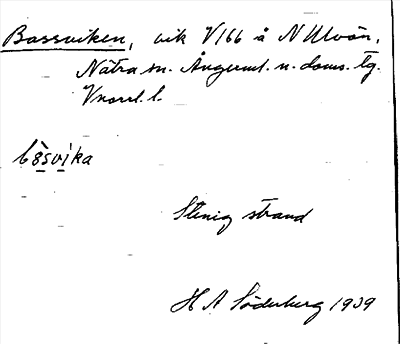 Bassviken, vik V166 å N Ulvön,
Nätra sn. Ångerml. n. doms. tg.
Vnorrl. l.
bȣ̀svi̱ka
Stenig strand
H A Söderberg 1939